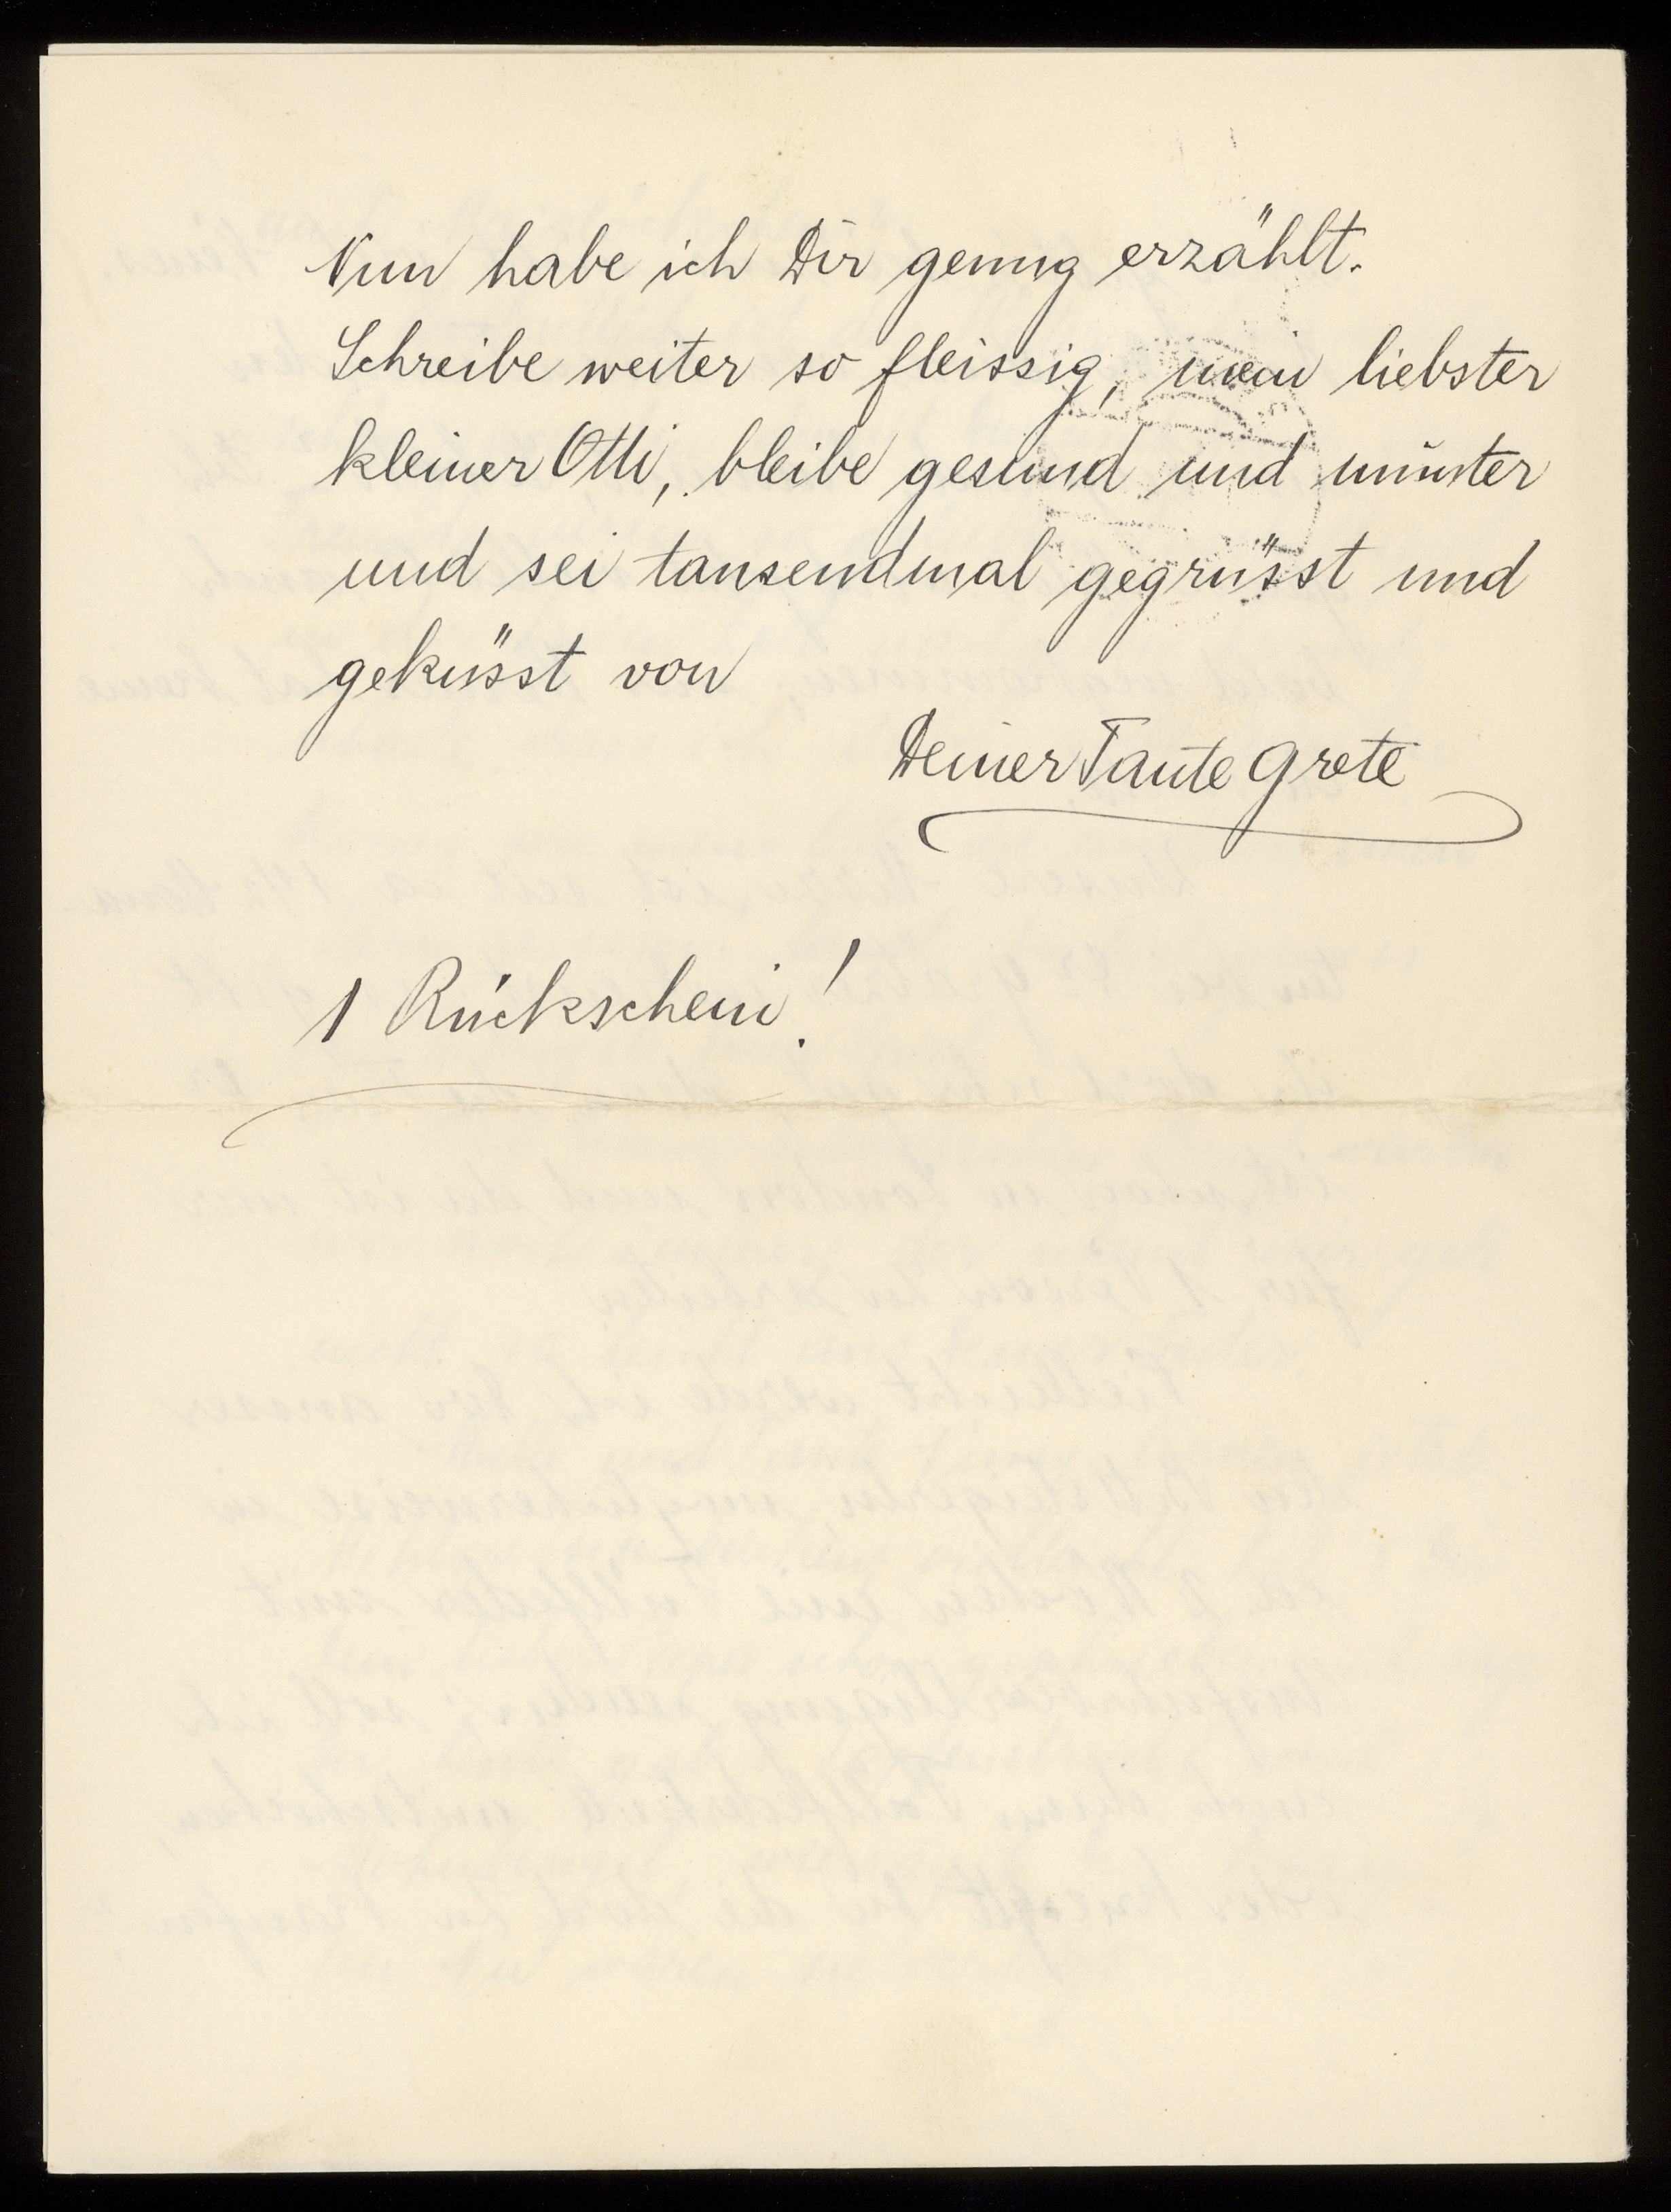 Nun habe ich Dir genug erzählt.
Schreibe weiter so fleissig, mein liebster
kleiner Otti, bleibe gesund und munter
und sei tausendmal gegrüsst und
geküsst von
Deiner Tante Grete
1 Rückschein!